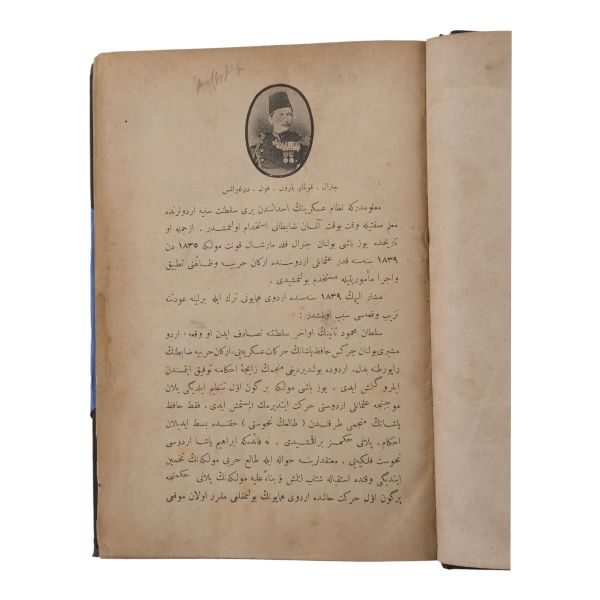 جنرال . قولمار بارون . فون . درغولتس
معلومدركه نظام عسكرينك احداثندن برى سلطنت سنيه اردولرنده
معلم صفتيله وقت بوقت آلمان ضابطانى استخدام اولنمشدر . ازجمله او
تاريخده يوز باشى بولنان جنرال فلد مارشال قونت مولتكه ١٨٣٥ دن
١٨٣٩ سنه‌سنه قدر عثمانلى اردوسنده اركان حربيه وظائفى تطبيق
واجرا مأموريتيله مستخدم بولنمشيدى .
مشار اليهك ١٨٣٩ سنه‌سنده اردوى همايونى ترك ايله برلينه عودتنه
غريب وقعه‌سى سبب اولمشدر :
سلطان محمود ثانينك اواخر سلطنتنه تصادف ايدن او وقعه ، اردو
مشيرى بولنان چركس حافظ پاشانك حركات عسكريه‌يى ، اركان حربيه ضابطنك
راپورطنه بدل ، اردوده بولنديرديغى منجمك زايچهٔ احكامنه توفيق ايتمسندن
ايلرو كلمش ايدى . يوز باشى مولتكه بركون اول تنظيم ايلديكى پلان
موجبنجه عثمانلى اردوسنى حركت ايتديرمك ايستمش ايدى . فقط حافظ
پاشانك منجمى طرفندن ( طالعك نحوستى ) حقنده بسط ايديلان
احكام ، پلانى حكمسز براقمشيدى . نه فائده‌كه ابراهيم پاشا اردوسى
نحوست فلكيه‌يى . معتقدلرينه حواله ايله طالع حربى مولتكه‌نك تخمين
ايتديكى وقتده استقباله شتاب ايتمش و بناءً عليه مولتكه‌نك پلانى حكمنجه
بركون اول حركت حالنده اردوى همايونك بولنمقلغى مقرر اولان موقعى